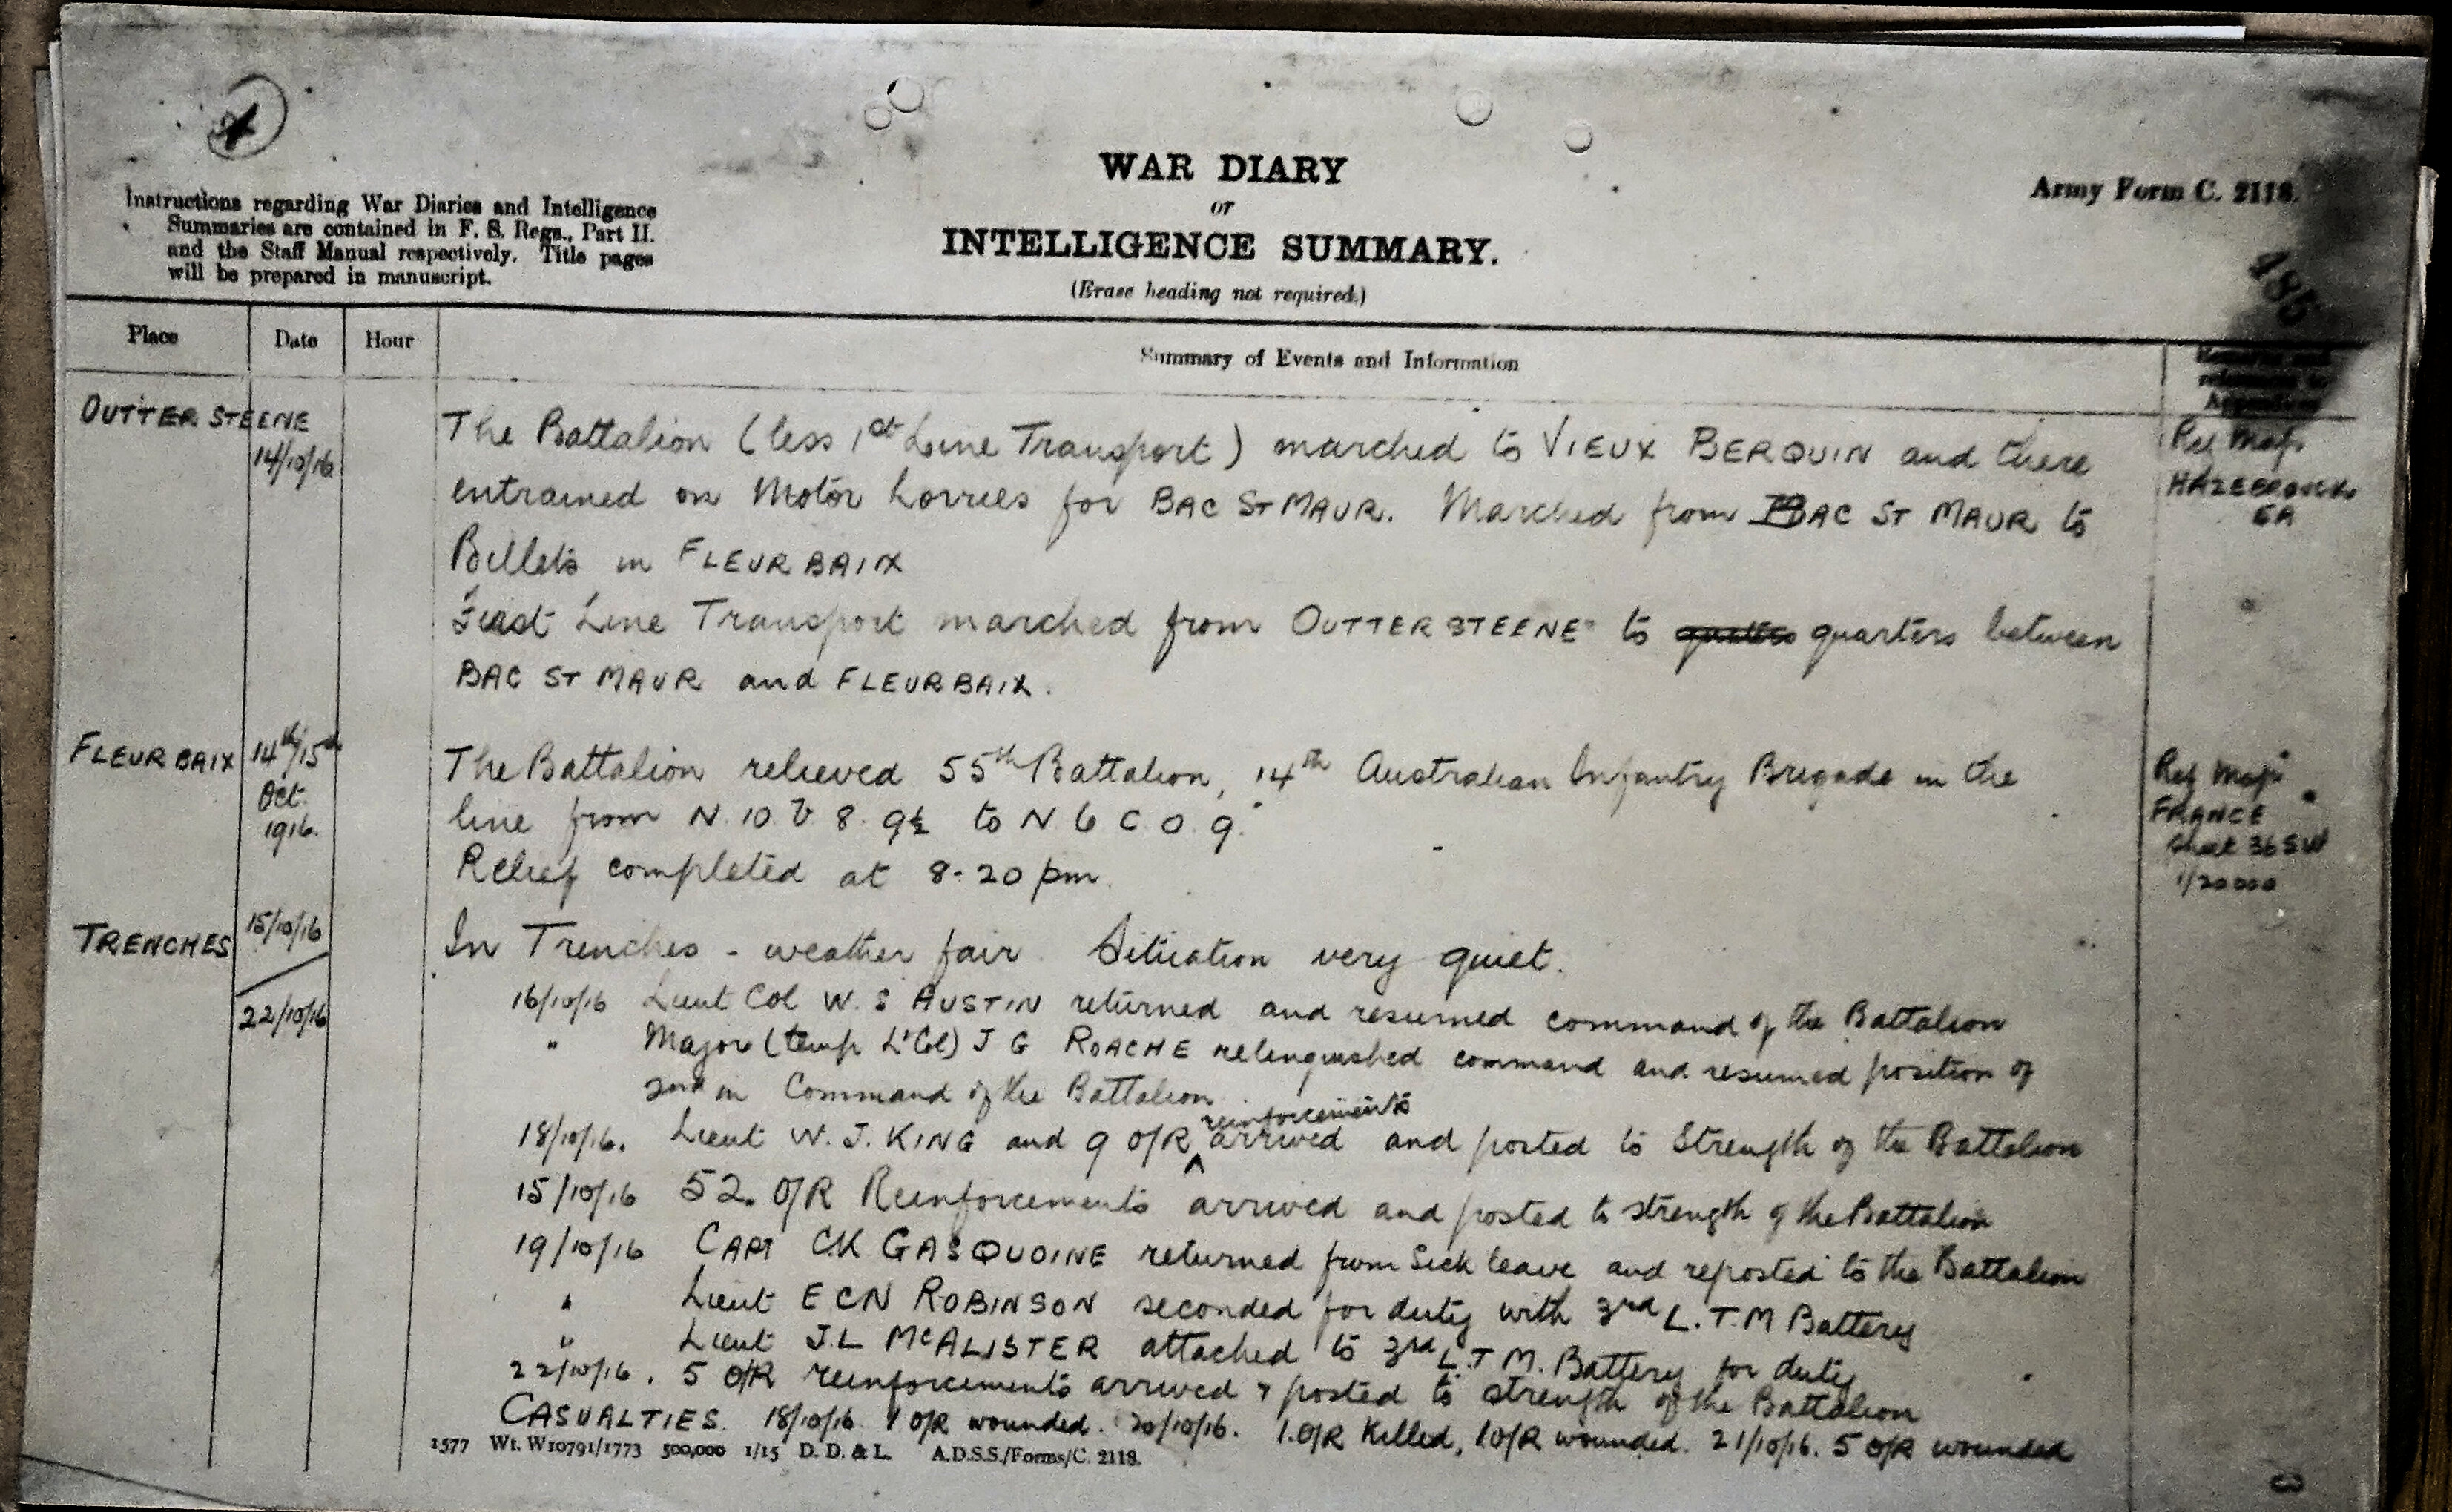 WAR DIARY
or
INTELLIGENCE SUMMARY.
(Erase heading not required.)
Army Form C. 2118.
Instructions regarding War Diaries and Intelligence
Summaries are contained in F. S. Regs., Part II.
and the Staff Manual respectively. Title pages
will be prepared in manuscript.
485
Place Date Hour Summary of Events and Information
OUTTERSTEENE
14/10/16
The Battalion (less 1st Line Transport) marched to VIEUX BERQUIN and there
entrained on Motor Lorries for BAC ST MAUR. Marched from BAC ST MAUR to
Billets in FLEURBAIX
First Line Transport marched from OUTTERSTEENE to quarters between
BAC ST MAUR and FLEURBAIX.
Ref Map
HAZEBROUCK
5A
FLEURBAIX 14th/15th
Oct.
1916.
The Battalion relieved 55th Battalion, 14th Australian Infantry Brigade in the
line from N. 10 b 8. 9½ to N 6 C 0. 9.
Relief completed at 8-20 pm.
Ref Map
FRANCE
Sheet 36 SW
1/20000
TRENCHES 15/10/16
22/10/16
In Trenches - weather fair. Situation very quiet.
16/10/16 Lieut Col W. S AUSTIN returned and resumed command of the Battalion
" Major (temp Lt Col) J G ROACHE relinquished command and resumed position of
2nd in Command of the Battalion
18/10/16. Lieut W. J. KING and 9 O/R reinforcements arrived and posted to Strength of the Battalion
15/10/16 52. O/R Reinforcements arrived and posted to strength of the Battalion
19/10/16 CAPT CK GASQUOINE returned from Sick leave and reposted to the Battalion
" Lieut E C N ROBINSON seconded for duty with 3rd L.T.M Battery
" Lieut J.L McALISTER attached to 3rd L.T M. Battery for duty
22/10/16. 5 O/R reinforcements arrived & posted to strength of the Battalion
CASUALTIES. 18/10/16 1 O/R wounded. 20/10/16. 1.O/R Killed, 1 O/R wounded. 21/10/16. 5 O/R wounded
1577 Wt. W10791/1773 500,000 1/15 D. D. & L. A.D.S.S./Forms/C. 2118.